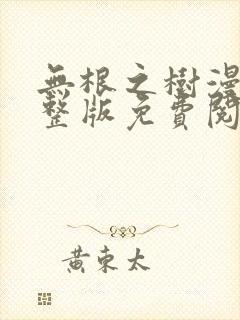 無根之樹漫
整版免費閱
黃東太